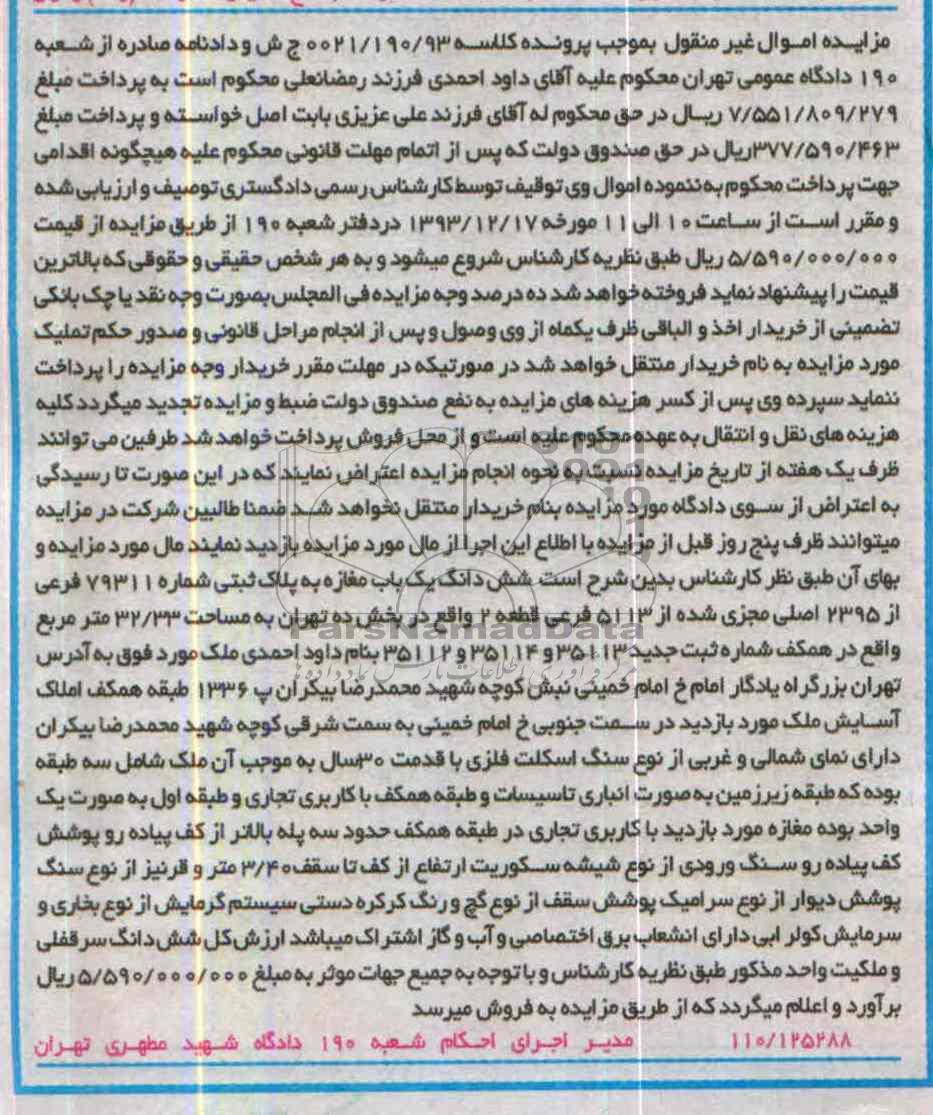 مزایـده امـوال غیر منقول بموجب پرونـده کلاسـه ۰۰۲۱/۱۹۰/۹۳ ج ش و دادنامه صادره از شـعبه
۱۹۰ دادگاه عمومی تهران محکوم علیه آقای داود احمدی فرزند رمضانعلی محکوم است به پرداخت مبلغ
۷/۵۵۱/۸۰۹/۲۷۹ ریـال در حق محکوم له آقای فرزند علی عزیزی بابت اصل خواسـته و پرداخت مبلغ
۳۷۷/۵۹۰/۴۶۳ریال در حق صندوق دولت که پس از اتمام مهلت قانونی محکوم علیه هیچگونه اقدامی
جهت پرداخت محکوم به ننموده اموال وی توقیف توسط کارشناس رسمی دادگستری توصیف و ارزیابی شده
و مقرر اسـت از سـاعت ۱۰ الی ۱۱ مورخه ۱۳۹۳/۱۲/۱۷ دردفتر شعبه ۱۹۰ از طریق مزایده از قیمت
۵/۵۹۰/۰۰۰/۰۰۰ ریال طبق نظریه کارشناس شروع میشود و به هر شخص حقیقی و حقوقی که بالاترین
قیمت را پیشنهاد نماید فروخته خواهد شد ده درصد وجه مزایده فی المجلس بصورت وجه نقد یا چک بانکی
تضمینی از خریدار اخذ و الباقی ظرف یکماه از وی وصول و پس از انجام مراحل قانونی و صدور حکم تملیک
مورد مزایده به نام خریدار منتقل خواهد شد در صورتیکه در مهلت مقرر خریدار وجه مزایده را پرداخت
ننماید سپرده وی پس از کسر هزینه های مزایده به نفع صندوق دولت ضبط و مزایده تجدید میگردد کلیه
هزینه های نقل و انتقال به عهده محکوم علیه است و از محل فروش پرداخت خواهد شد طرفین می توانند
ظرف یک هفته از تاریخ مزایده نسبت به نحوه انجام مزایده اعتراض نمایند که در این صورت تا رسیدگی
به اعتراض از سـوی دادگاه مورد مزایده بنام خریدار منتقل نخواهد شـد ضمنا طالبین شرکت در مزایده
میتوانند ظرف پنج روز قبل از مزایده با اطلاع این اجرا از مال مورد مزایده بازدید نمایند مال مورد مزایده و
بهای آن طبق نظر کارشناس بدین شرح است شش دانگ یک باب مغازه به پلاک ثبتی شماره ۷۹۳۱۱ فرعی
از ۲۳۹۵ اصلی مجزی شده از ۵۱۱۳ فرعی قطعه ۲ واقع در بخش ده تهران به مساحت ۳۲/۳۳ متر مربع
واقع در همکف شماره ثبت جدید ۳۵۱۱۳ و ۳۵۱۱۴ و ۳۵۱۱۲ بنام داود احمدی ملک مورد فوق به آدرس
تهران بزرگراه یادگار امام خ امام خمینی نبش کوچه شهید محمدرضا بیکران پ ۱۳۳۶ طبقه همکف املاک
آسـایش ملک مورد بازدید در سـمت جنوبی خ امام خمینی به سمت شرقی کوچه شهید محمدرضا بیکران
دارای نمای شمالی و غربی از نوع سنگ اسکلت فلزی با قدمت ۳۰سال به موجب آن ملک شامل سه طبقه
بوده که طبقه زیرزمین به صورت انباری تاسیسات و طبقه همکف با کاربری تجاری و طبقه اول به صورت یک
واحد بوده مغازه مورد بازدید با کاربری تجاری در طبقه همکف حدود سه پله بالاتر از کف پیاده رو پوشش
کف پیاده رو سـنگ ورودی از نوع شیشه سـکوریت ارتفاع از کف تا سقف ۳/۴۰ متر و قرنیز از نوع سنگ
پوشش دیوار از نوع سرامیک پوشش سقف از نوع گچ و رنگ کرکره دستی سیستم گرمایش از نوع بخاری و
سرمایش کولر ابی دارای انشعاب برق اختصاصی و آب و گاز اشتراک میباشد ارزش کل شش دانگ سرقفلی
و ملکیت واحد مذکور طبق نظریه کارشناس و با توجه به جمیع جهات موثر به مبلغ ۵/۵۹۰/۰۰۰/۰۰۰ ریال
برآورد و اعلام میگردد که از طریق مزایده به فروش میرسد
۱۱۰/۱۲۵۲۸۸ مدیـر اجـرای احـکام شـعبه ۱۹۰ دادگاه شـهید مطهـری تهـران
ParsNamadData